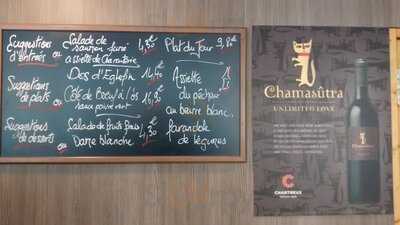 Suggestions d'Entrées
Salade de saumon fumé
ou
assiette de Charcuterie
4,30€
Suggestions de plats
Dos d'Eglefin 14,40€
ou
Côte de Boeuf à l'os 16,90€
sauce poivre vert
Suggestions de desserts
Salade de fruits frais
ou
Dame blanche
4,30€
Plat du Jour 9,80€
Assiette
du pêcheur
au beurre blanc,
farandole
de légumes
Chamasûtra
UNLIMITED LOVE
Chamasûtra
CHARTREUX